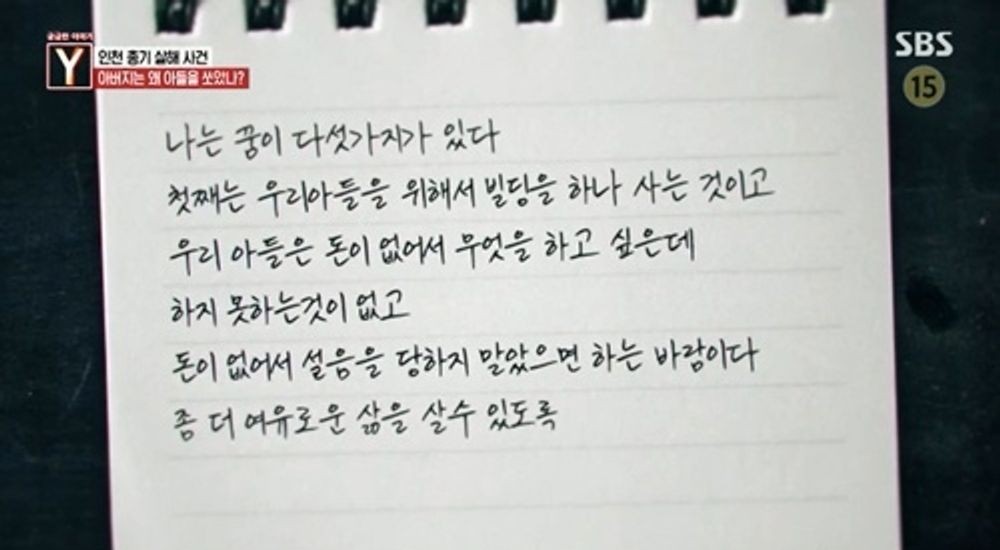 궁금한 이야기
Y
인천 총기 살해 사건
아버지는 왜 아들을 쏘았나?
SBS
15
나는 꿈이 다섯가지가 있다
첫째는 우리아들을 위해서 빌딩을 하나 사는 것이고
우리 아들은 돈이 없어서 무엇을 하고 싶은데
하지 못하는것이 없고
돈이 없어서 설음을 당하지 말았으면 하는 바람이다
좀 더 여유로운 삶을 살수 있도록